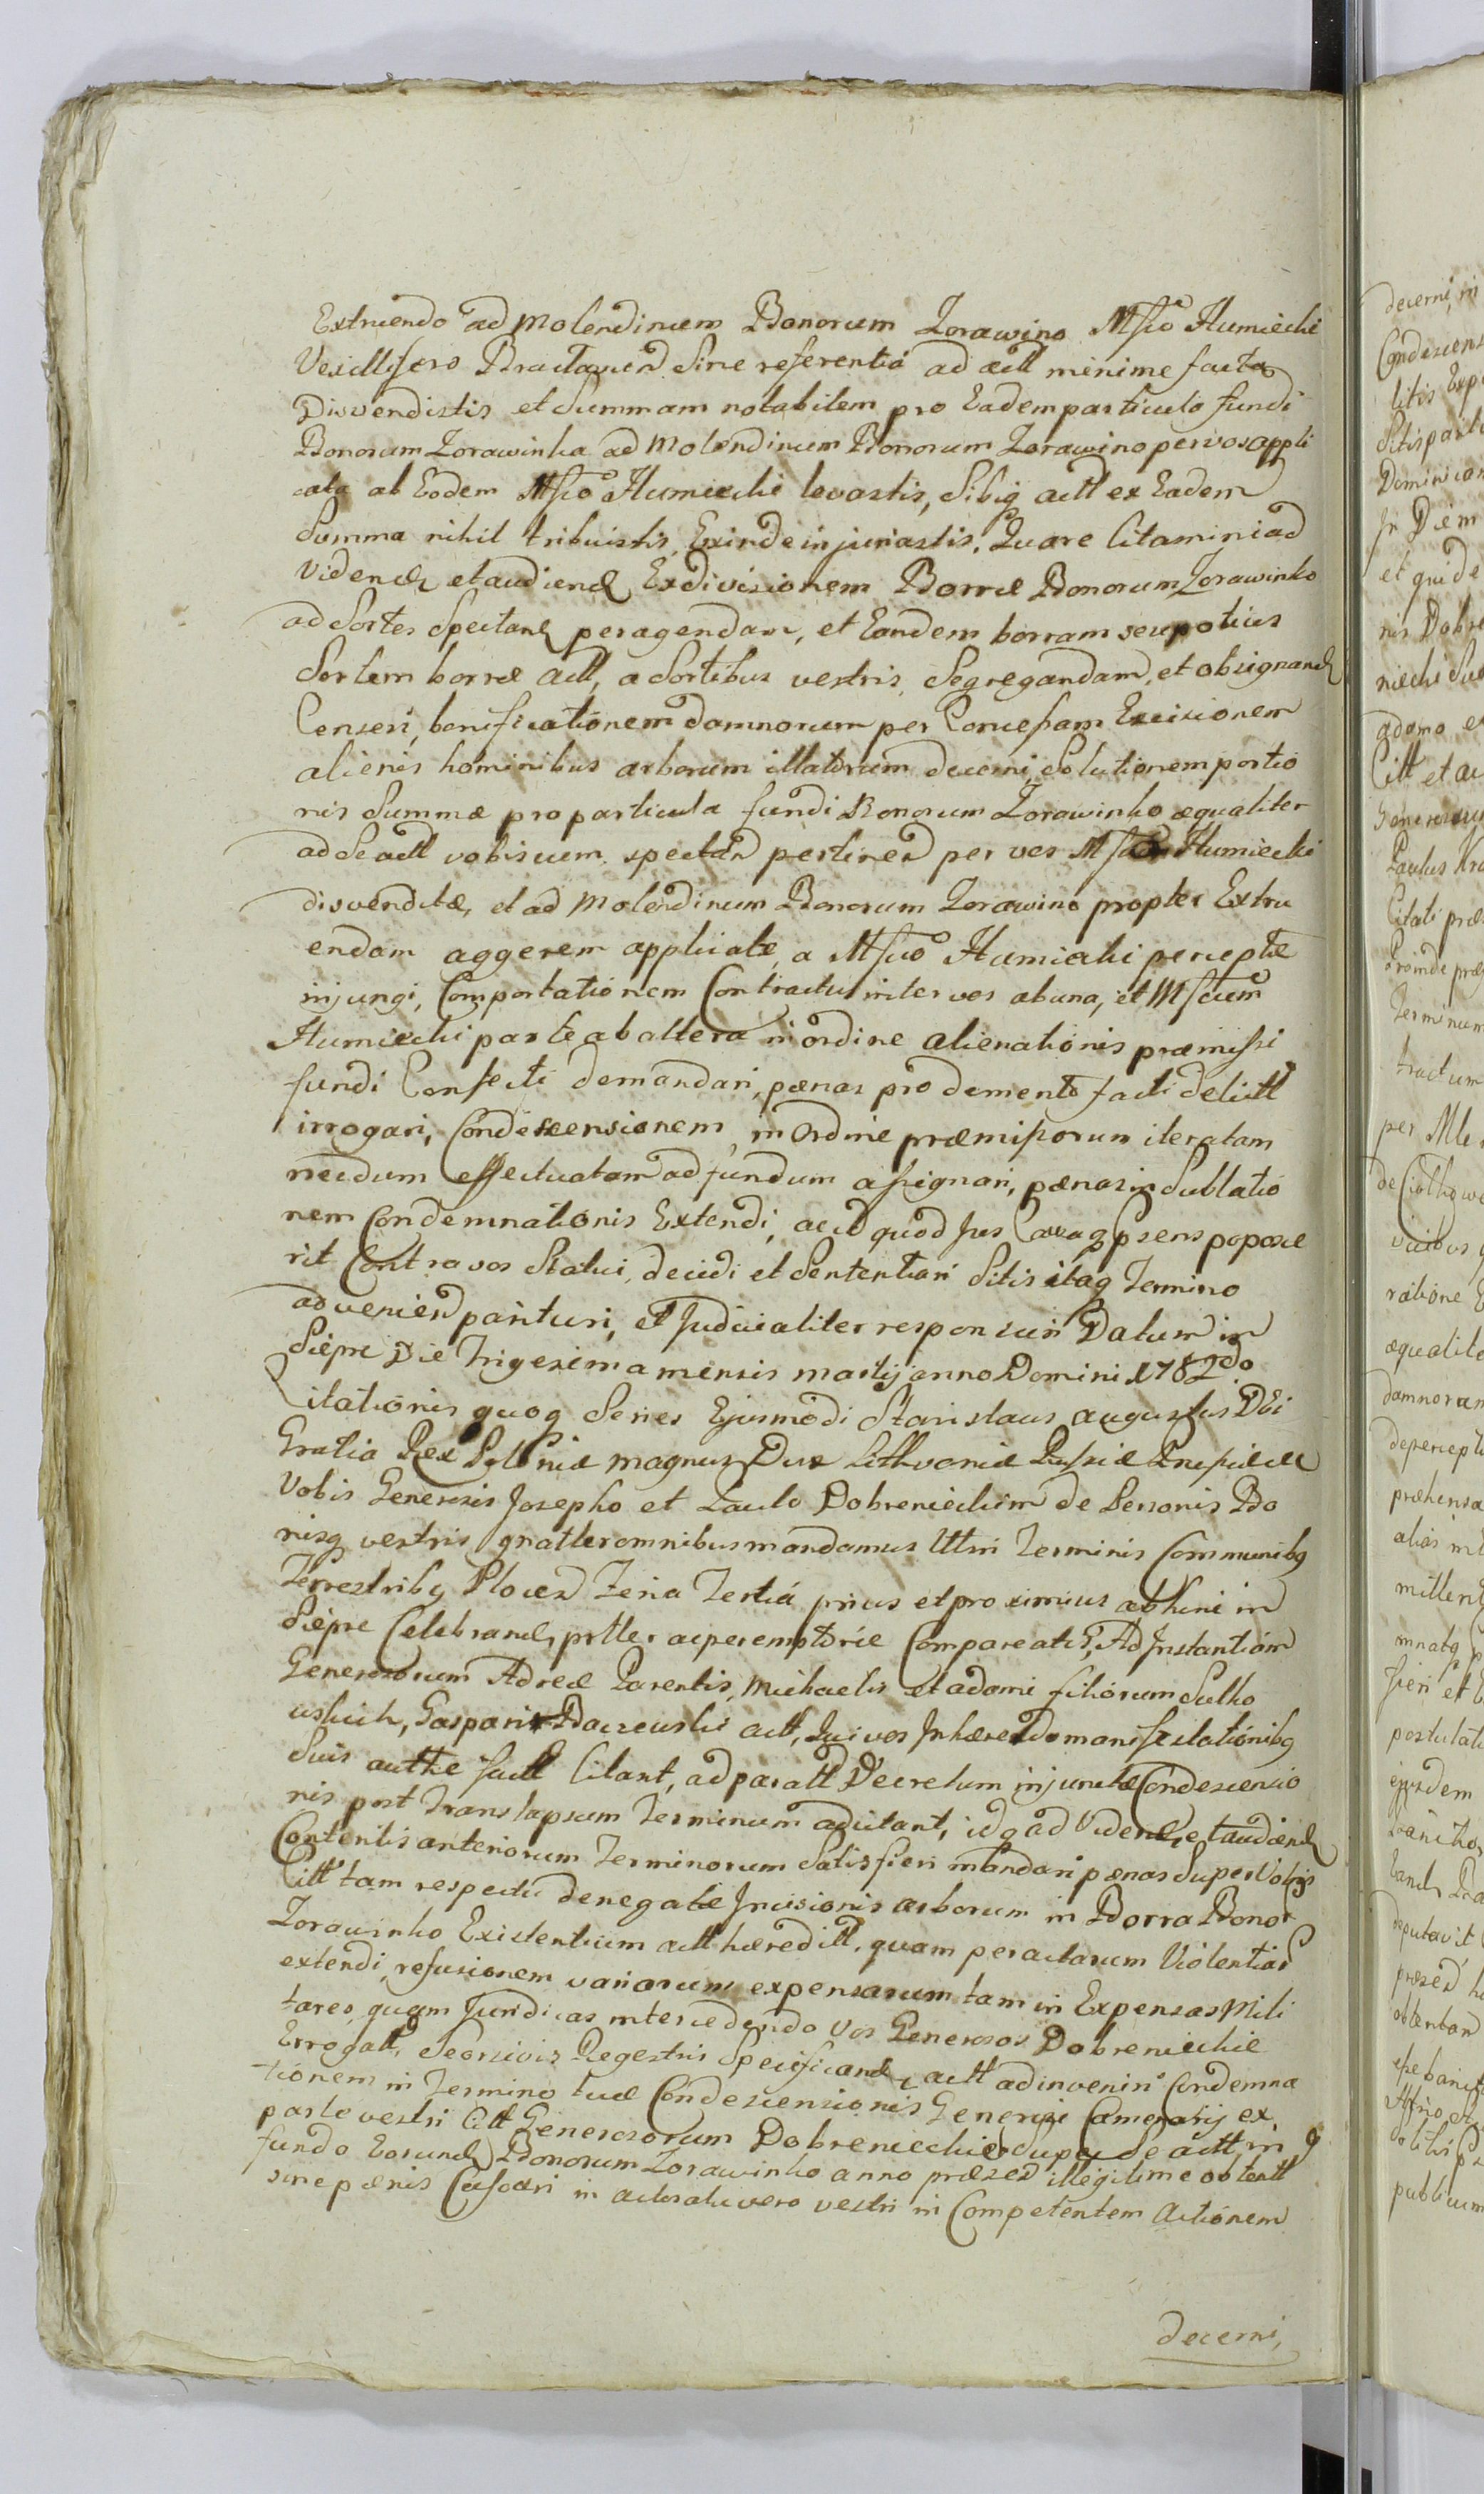 Extruendo ad Molendinum Bonorum Zorawino Mfco Humiecki
Vexillifero Braclavien Sine referentia ad act minime facta
Disvendistis et Summam notabilem pro Eadem particula fundi
Bonorum Zorawinka ad Molendinum Bonorum Zorawino per vos appli
cata ab Eodem Mfco Humiecki levastis, Sibiq act ex Eadem
Summa nihil tribuistis, Exinde injuriastis. Quare Citamini ad
Videnđ et audienđ Exdivisionem Borræ Bonorum Zorawinko
ad Sortes Spectanđ peragendam, et Eandem borram seu potius
Sortem borræ Act, a Sortibus vestris Segregandam, et obsignanđ
Censeri, bonificationem damnorum per Concessam Excisionem
alienis hominibus arborum illatorum decerni, Solutionem portio
nis Summæ pro particula fundi Bonorum Zorawinko æqualiter
ad Se act vobiscum spectan pertinen per vos Mfco Humiecki
disvenditæ, et ad Molendinum Bonorum Zorawino propter Extru
endam aggerem applicatæ, a Mfco Humiecki perceptæ
injungi, Comportationem Contractus inter vos ab una, et Mfcum
Humiecki parte ab altera in ordine alienationis præmissi
fundi Confecti demandari, pænas pro demerito facti delictt
irrogari, Condescensionem in Ordine præmissorum iteratam
necdum effectuatam ad fundum assignari, pænas in Sublatio
nem Condemnationis Extendi, ac id quod Jus Causaq psens poposce
rit Contra vos Statui, decidi et Sententiari Sitis itaq Termino
advenien parituri, et Judicialiter responsuri Datum in
Siepre Die Trigesima mensis martij anno Domini 1782do
Citationis quoq Series Ejusmodi Stanislaus augustus DEi
Gratia Rex Poloniæ magnus Dux Lithvaniæ Russiæ Prussiæ
Vobis Generosis Josepho et Paulo Dobrenieckim de Personis Bo
nisq vestris gnatler omnibus mandamus Uti in Terminis Communibq
Terrestribq Plocen Feria Tertiá prius et proximius abhinc in
Siepre Celebranđ, pttler ac peremptorie Compareatis, Ad Instantiam
Generosorum Adreæ Parentis, Michaelis et adami filiorum Sulko
wskich, Gasparis Baczewski act, Qui vos Inhærendo manifestationibq
Suis autthe factt Citant, ad paratt Decretum injunctæ Condescensio
nis post Translapsum Terminum adcitant, idq ad Videnđ, et audienđ
Contentis anteriorum Terminorum Satisfieri mandari pænas Super Vobis
Citt tam respectu denegatæ Incisionis arborum in Borra Bonor
Zorawinko Existentium act hæreditt, quam peractarum Violentiar
extendi, refusionem variorum expensarum tam in Expensas Mili
tares, quam Juridicas intercedendo Vos Generosos Dobrenieckie
Errogatt, Seorsivis Regestris Specificanđ, act adinveniri Condemna
tionem in Termino tuæ Condescensionis Generosi Camerarij ex
parte vestri Citt Generosorum Dobrenieckie Supa Se act, in
fundo Eorunđ Bonorum Zorawinko anno præzed illegitime obtentt
sine pænis Cassari in actoratu vero vestri in Competentem Actionem
decerni,